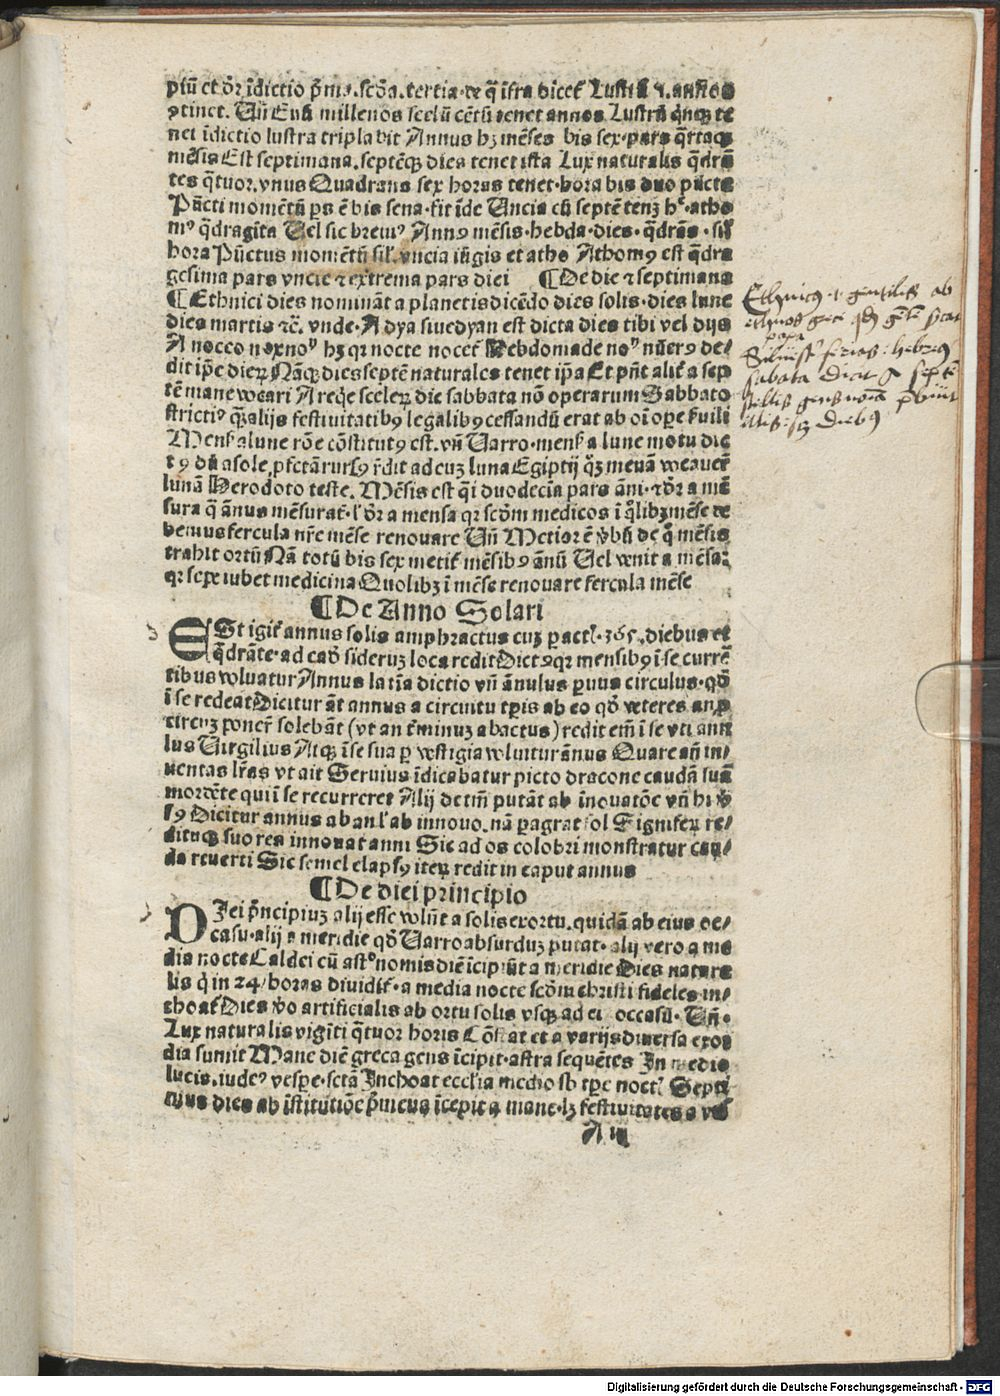 piū et dr̄ īdictio p̄ma. scd̄a. tertia. vt q̄ īfra dicet᷑ Lustrū 4. annos
ꝯtinet. Vn̄ Euū millenos seclū cētū tenet annos Lustrū qnqꝫ te
net īdictio lustra tripla bit Annus hꝫ mēses bis sex. pars q̄rtaqꝫ
mēsis Est septimana. septēqꝫ dies tenet ista Lux naturalis q̄drā
tes q̄tuor. vnus Quadrans sex horas tenet. hora bis duo pūcta
Pūcti momētū ps ē bis sena. fit īde Vncia cū septē tenꝫ hec atho
mꝰ q̄dragīta Vel sic breuiꝰ Annꝰ mēsis. hebda. dies. q̄drās. sil᷑
hora Pūctus momētū sil᷑. vncia iūgis et atho Athomꝰ est q̄dra
gesima pars vncie ⁊ extrema pars diei ¶ De die ⁊ septimana
¶ Ethnici dies nomināt a planetis dicēdo dies solis. dies lune
dies martis ⁊c̄. vnde. A dya siue dyan est dicta dies tibi vel dijs
A nocco nox noꝰ hꝫ qꝛ nocte nocet᷑ Hebdomade noꝰ nūerꝰ de
dit ip̄e dierꝝ Nāqꝫ dies septē naturales tenet ip̄a Et pn̄t alit᷑ a sep
tē mane vocari A reqͥe scelerꝝ die sabbata nō operarum Sabbato
strictiꝰ qꝫ alijs festiuitatibꝰ legalibꝰ cessandū erat ab oī oꝑe ẜuili
Mensẜ a lune rōe cōstitutꝰ est. vn̄ Varro. mensẜ a lune motu dic
tꝰ dū a sole ꝓfectā rursꝰ r̄dit ad euꝫ luna Egiptij qꝫ menā vocauer̄
lunā Herodoto teste. Mēsis est q̄i duodecīa pars āni. ⁊ dr̄ a mē
sura q̄ annus mēsurat᷑. l᷑ dr̄ a mensa qꝛ scd̄m medicos ī q̄libꝫ mēse de
bemus fercula nr̄e mēse renouare Vn̄ Metior ē v̄bū de q̄ mēsis
trahit ortū Nā totū bis sex metit᷑ mēsibꝰ annū Vel venit a mēsa:
qꝛ sepe iubet medicina Quolibꝫ ī mēse renouare fercula mēse
¶ De Anno Solari
ESt igit᷑ annus solis amphractus cuꝫ ꝑactl᷑. 365. diebus et
q̄drāte. ad eadē sideruꝫ loca redit Dictꝰ qꝛ mensibꝰ ī se currē
tibus voluatur Annus latīa dictio vn̄ ānulus ꝑuus circulus. qd̄
ī se redeat Dicitur āt annus a circuitu tp̄is ab eo qd̄ veteres an ꝓ
circuꝫ poner̄ solebāt (vt an t̄minus abactus) redit em̄ ī se vti anu
lus Virgilius Atqꝫ ī se sua ꝑ vestigia voluitur ānus Quare an̄ in/
uentas lr̄as vt ait Seruius īdicabatur picto dracone caudā suā
mordēte qui ī se recurreret Alij de tm̄ putāt ab īnouatōe vn̄ hi v̄
sꝰ Dicitur annus ab an l᷑ ab innouo. nā ꝑagrat sol Signiferꝝ re/
ditusqꝫ suo res innouat anni Sic ad os colobri monstratur cau/
da reuerti Sic semel elapsꝰ iterꝝ redit in caput annus
¶ De diei principio
DIei pn̄cipiuꝫ alij esse volūt a solis exortu. quidā ab eius oc/
casu. alij a meridie qd̄ Varro absurduꝫ putat. alij vero a me
dia nocte Caldei cū astᵒnomis diē īcipiūt a meridie Dies natura
lis q̄ in 24 horas diuidit᷑. a media nocte scd̄m christi fideles in/
choat᷑ Dies v̄o artificialis ab ortu solis vsqꝫ ad ei occasū. Vn̄.
Lux naturalis vigīti q̄tuor horis Cōstat et a varijs diuersa exor
dia sumit Mane diē greca gens īcipit. astra sequētes In medio
lucis. iudeꝰ vespe. sctā Inchoat eccl̄ia medio sb tp̄e noctl᷑ Septi
mus dies ab īstitutiōe p̄meua īcepit a mane. lꝫ festiuitates a ves
A iij
Ethnicꝰ .i. gentilis ab
ethnos grece qd̄ gēs
papa
Siluestꝰ ferias: hebreꝰ
sabata dicit
stellis gens
illis: scꝫ diebꝰ
Digitalisierung gefördert durch die Deutsche Forschungsgemeinschaft - DFG